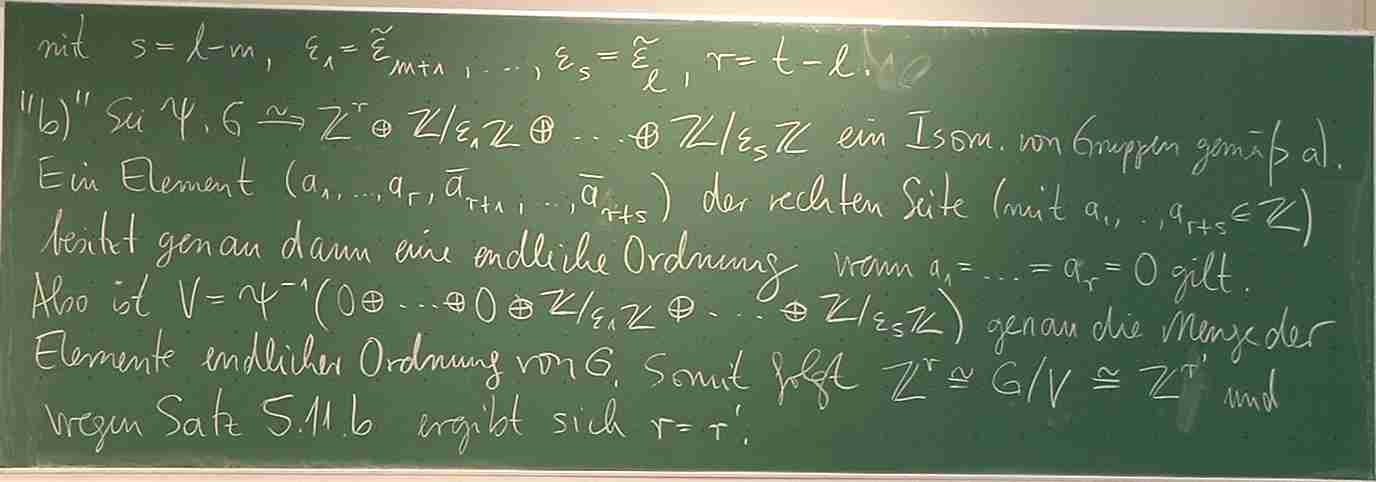 mit s = l-m, ε₁ = ε̃ₘ₊₁, ..., εₛ = ε̃ₗ, r = t-l.
"b)" Sei Ψ: G ⥲ ℤʳ ⊕ ℤ/ε₁ℤ ⊕ ... ⊕ ℤ/εₛℤ ein Isom. von Gruppen gemäß a).
Ein Element (a₁, ..., aᵣ, ā_{r+1}, ..., ā_{r+s}) der rechten Seite (mit a₁, .., a_{r+s} ∈ ℤ)
besitzt genau dann eine endliche Ordnung wenn a₁ = ... = aᵣ = 0 gilt.
Also ist V = Ψ⁻¹(0 ⊕ ... ⊕ 0 ⊕ ℤ/ε₁ℤ ⊕ ... ⊕ ℤ/εₛℤ) genau die Menge der
Elemente endlicher Ordnung von G. Somit folgt ℤʳ ≅ G/V ≅ ℤʳ' und
wegen Satz 5.11.b ergibt sich r = r'.